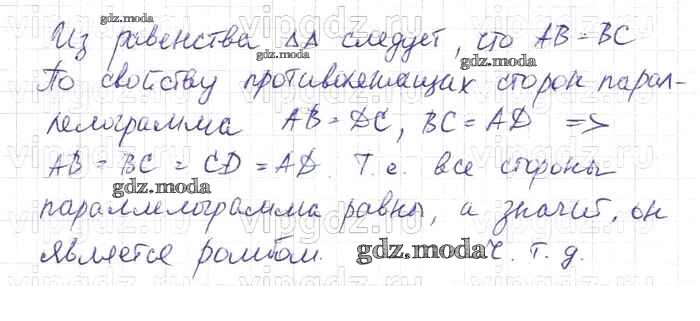 Из равенства ΔΔ следует, что AB = BC
По свойству противолежащих сторон парал-
лелограмма AB = DC, BC = AD =>
AB = BC = CD = AD. Т.е. все стороны
параллелограмма равны, а значит, он
является ромбом. Ч. т. д.
gdz.moda
gdz.moda
gdz.moda
gdz.moda
vipgdz.ru